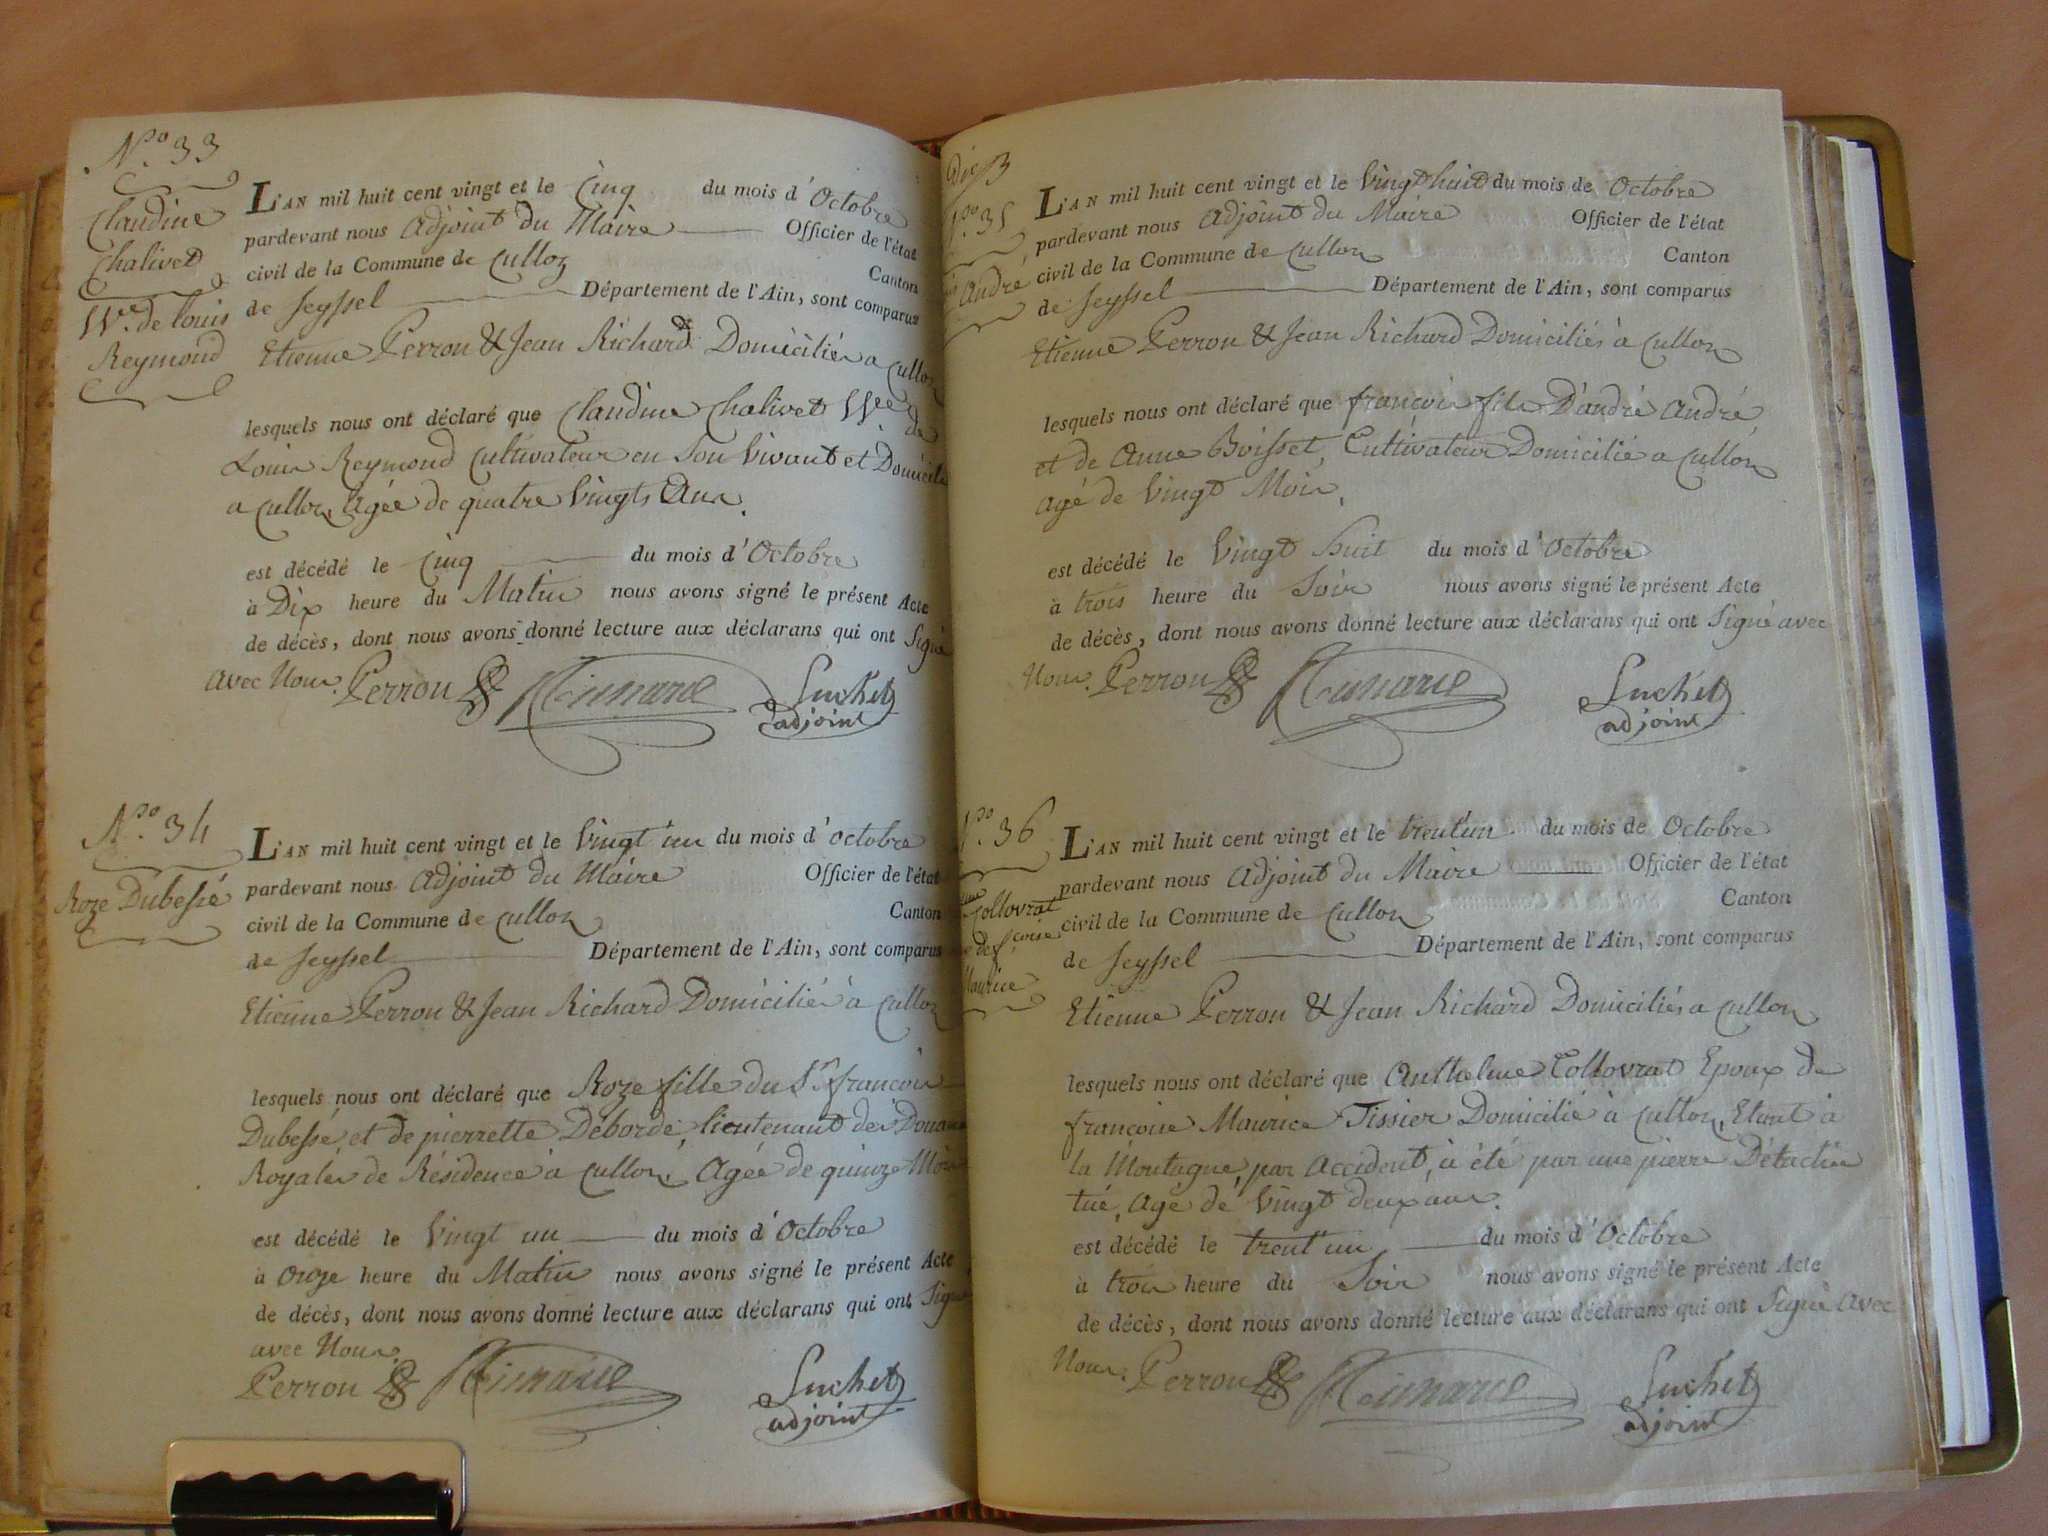 N.o 33
Claudine
Chalivet
Vve. de Louis
Reymond
L'AN mil huit cent vingt et le Cinq du mois d'Octobre
pardevant nous Adjoint du Maire Officier de l'état
civil de la Commune de Culloz Canton
de Seyssel Département de l'Ain, sont comparus
Etienne Perron & Jean Richard Domiciliés a Culloz
lesquels nous ont déclaré que Claudine Chalivet Vve de
Louis Reymond Cultivateur en Son Vivant et Domicilié
a Culloz, Agée de quatre Vingts Ans.
est décédé le Cinq du mois d'Octobre
à Dix heure du Matin nous avons signé le présent Acte
de décès, dont nous avons donné lecture aux déclarans qui ont Signé
avec Nous. Perron Suchet
adjoint
N.o 34
Roze Dubessé
L'AN mil huit cent vingt et le Vingt un du mois d'octobre
pardevant nous Adjoint du Maire Officier de l'état
civil de la Commune de Culloz Canton
de Seyssel Département de l'Ain, sont comparus
Etienne Perron & Jean Richard Domiciliés à Culloz
lesquels nous ont déclaré que Roze fille du Sr. francois
Dubessé, et de pierrette Déborde, lieutenant des Douanes
Royales de Résidence à Culloz, Agée de quinze Mois
est décédé le Vingt un du mois d'Octobre
à Onze heure du Matin nous avons signé le présent Acte
de décès, dont nous avons donné lecture aux déclarans qui ont Signé
avec Nous.
Perron Suchet
adjoint
N.o 35
André
L'AN mil huit cent vingt et le Vingt huit du mois de Octobre
pardevant nous Adjoint du Maire Officier de l'état
civil de la Commune de Culloz Canton
de Seyssel Département de l'Ain, sont comparus
Etienne Perron & Jean Richard Domiciliés à Culloz
lesquels nous ont déclaré que francois fils D'andré André,
et de Anne Boisset, Cultivateur Domicilié a Culloz
agé de Vingt Mois.
est décédé le Vingt huit du mois d'Octobre
à trois heure du Soir nous avons signé le présent Acte
de décès, dont nous avons donné lecture aux déclarans qui ont Signé avec
Nous. Perron Suchet
adjoint
N.o 36
Collovrat
Maurice
L'AN mil huit cent vingt et le trent'un du mois de Octobre
pardevant nous Adjoint du Maire Officier de l'état
civil de la Commune de Culloz Canton
de Seyssel Département de l'Ain, sont comparus
Etienne Perron & Jean Richard Domiciliés a Culloz
lesquels nous ont déclaré que Anthelme Collovrat Epoux de
francoise Maurice Tissier Domicilié à Culloz, Etant à
la Montagne, par Accident, a été par une pierre Détachée
tué, Agé de Vingt deux ans.
est décédé le trent'un du mois d'Octobre
à trois heure du Soir nous avons signé le présent Acte
de décès, dont nous avons donné lecture aux déclarans qui ont Signé Avec
Nous. Perron Suchet
adjoint